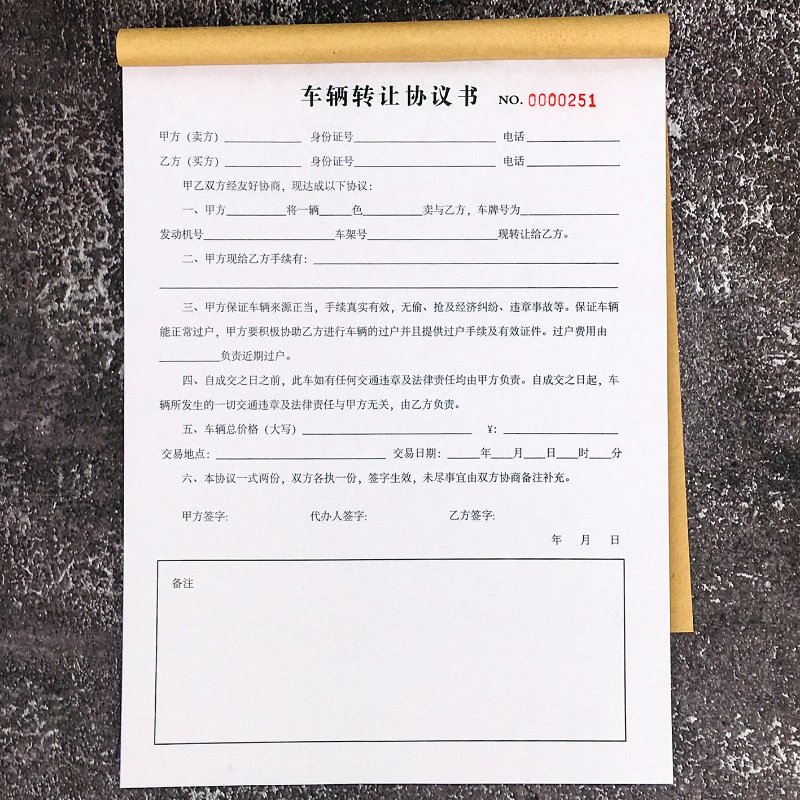 车辆转让协议书 NO. 0000251
甲方（卖方）____________ 身份证号______________________ 电话______________
乙方（买方）____________ 身份证号______________________ 电话______________
甲乙双方经友好协商，现达成以下协议：
一、甲方_________将一辆_____色_________卖与乙方，车牌号为_______________
发动机号____________________车架号____________________现转让给乙方。
二、甲方现给乙方手续有：______________________________________________
______________________________________________________________________
三、甲方保证车辆来源正当，手续真实有效，无偷、抢及经济纠纷、违章事故等。保证车辆
能正常过户，甲方要积极协助乙方进行车辆的过户并且提供过户手续及有效证件。过户费用由
__________负责近期过户。
四、自成交之日之前，此车如有任何交通违章及法律责任均由甲方负责。自成交之日起，车
辆所发生的一切交通违章及法律责任与甲方无关，由乙方负责。
五、车辆总价格（大写）__________________________ ¥：__________________
交易地点：__________________________ 交易日期：_____年___月___日___时___分
六、本协议一式两份，双方各执一份，签字生效，未尽事宜由双方协商备注补充。
甲方签字: 代办人签字: 乙方签字:
年 月 日
备注